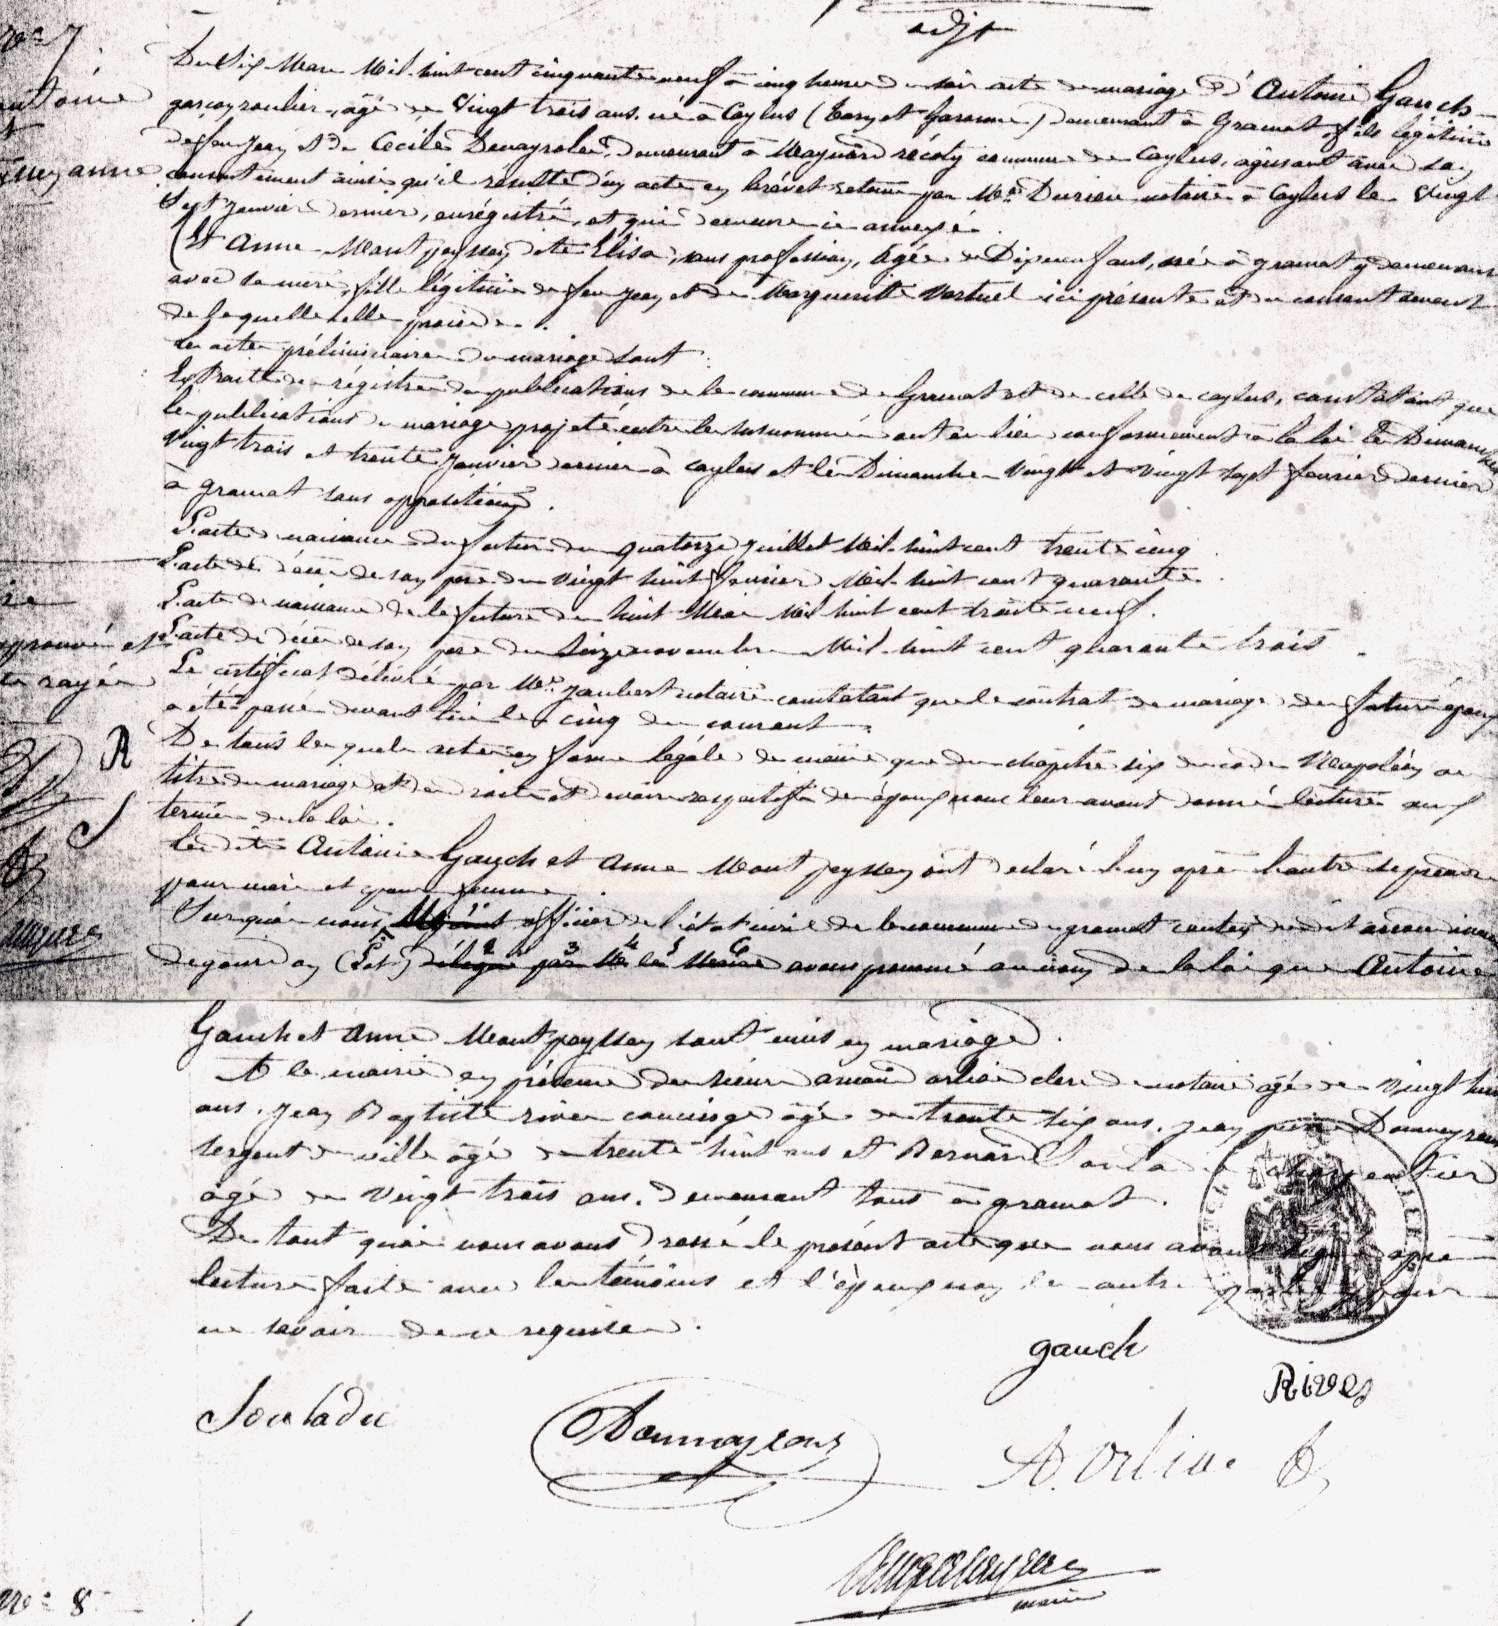 adjt
N° 7
Du Six Mars Mil huit cent cinquante neuf à cinq heures du soir acte de mariage d'Antoine Gauch
garçon roulier, âgé de Vingt trois ans, né à Caylus (Tarn et Garonne) demeurant à Gramat fils légitime
de feu Jean et de Cécile Delmayrolles, demeurant à commune de Caylus, agissant avec son
consentement ainsi qu'il résulte d'un acte en brévet retenu par Me Durieu notaire à Caylus le Vingt
Sept Janvier dernier, enrégistré, et qui demeure ci annexé.
Et Anne Montpeyssen dite Elisa, sans profession, âgée de Dix neuf ans, née à gramat y demeurant
avec sa mère, fille légitime de feu Jean et de Marguerite Vertuel ici présente et du consentement
de laquelle elle procède.
Les actes préliminaires du mariage sont :
Extraits des régistres des publications de la commune de Gramat et de celle de caylus, constatant que
les publications du mariage projeté entre les susnommés ont eu lieu conformement à la loi les Dimanches
Vingt trois et trente Janvier dernier à caylus et les Dimanches Vingt et Vingt sept février dernier
à gramat sans opposition.
L'acte de naissance du futur du quatorze juillet Mil huit cent trente cinq
L'acte de décès de son père du Vingt huit février Mil huit cent quarante.
L'acte de naissance de la future du huit Mai Mil huit cent trente neuf.
L'acte de décès de son père du Seize novembre Mil huit cent quarante trois.
Le certificat délivré par Me Jaubert notaire constatant que le contrat de mariage des futurs époux
a été passé devant lui le cinq du courant.
De tous lesquels actes en forme légale de même que du chapitre six du code Napoléon au
titre du mariage et des droits et devoirs respectifs des époux nous leur avons donné lecture aux
termes de la loi.
Les dits Antoine Gauch et Anne Montpeyssen ont déclaré l'un après l'autre se prendre
pour mari et pour femme.
Sur quoi nous officier de l'état civil de la commune de gramat canton du dit
de gourdon (Lot) délégué par M. le Maire avons prononcé au nom de la loi que Antoine
Gauch et Anne Montpeyssen sont unis en mariage.
A la mairie en présence des sieurs orliac clerc de notaire âgé de vingt huit
ans, Jean Baptiste rives concierge âgé de trente six ans, Jean pierre
sergent de ville âgé de trente huit ans et Bernard charpentier
âgé de vingt trois ans, demeurant tous à gramat.
De tout quoi nous avons dressé le présent acte que nous avons signé après
lecture faite avec les témoins et l'époux non les autres parties pour
ne savoir de ce requises.
gauch
Rives
A. Orliac
maire
N° 8